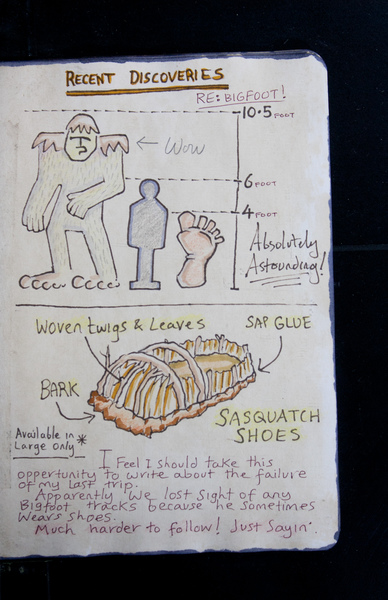 RECENT DISCOVERIES
RE: BIGFOOT!
10.5 FOOT
← Wow
6 FOOT
4 FOOT
Absolutely
Astounding!
Woven twigs & Leaves
SAP GLUE
BARK
SASQUATCH
SHOES
Available in
Large only *
I Feel I should take this
oppertunity to write about the failure
of my last trip.
Apparently we lost sight of any
Bigfoot tracks because he sometimes
wears shoes.
Much harder to follow! Just Sayin'